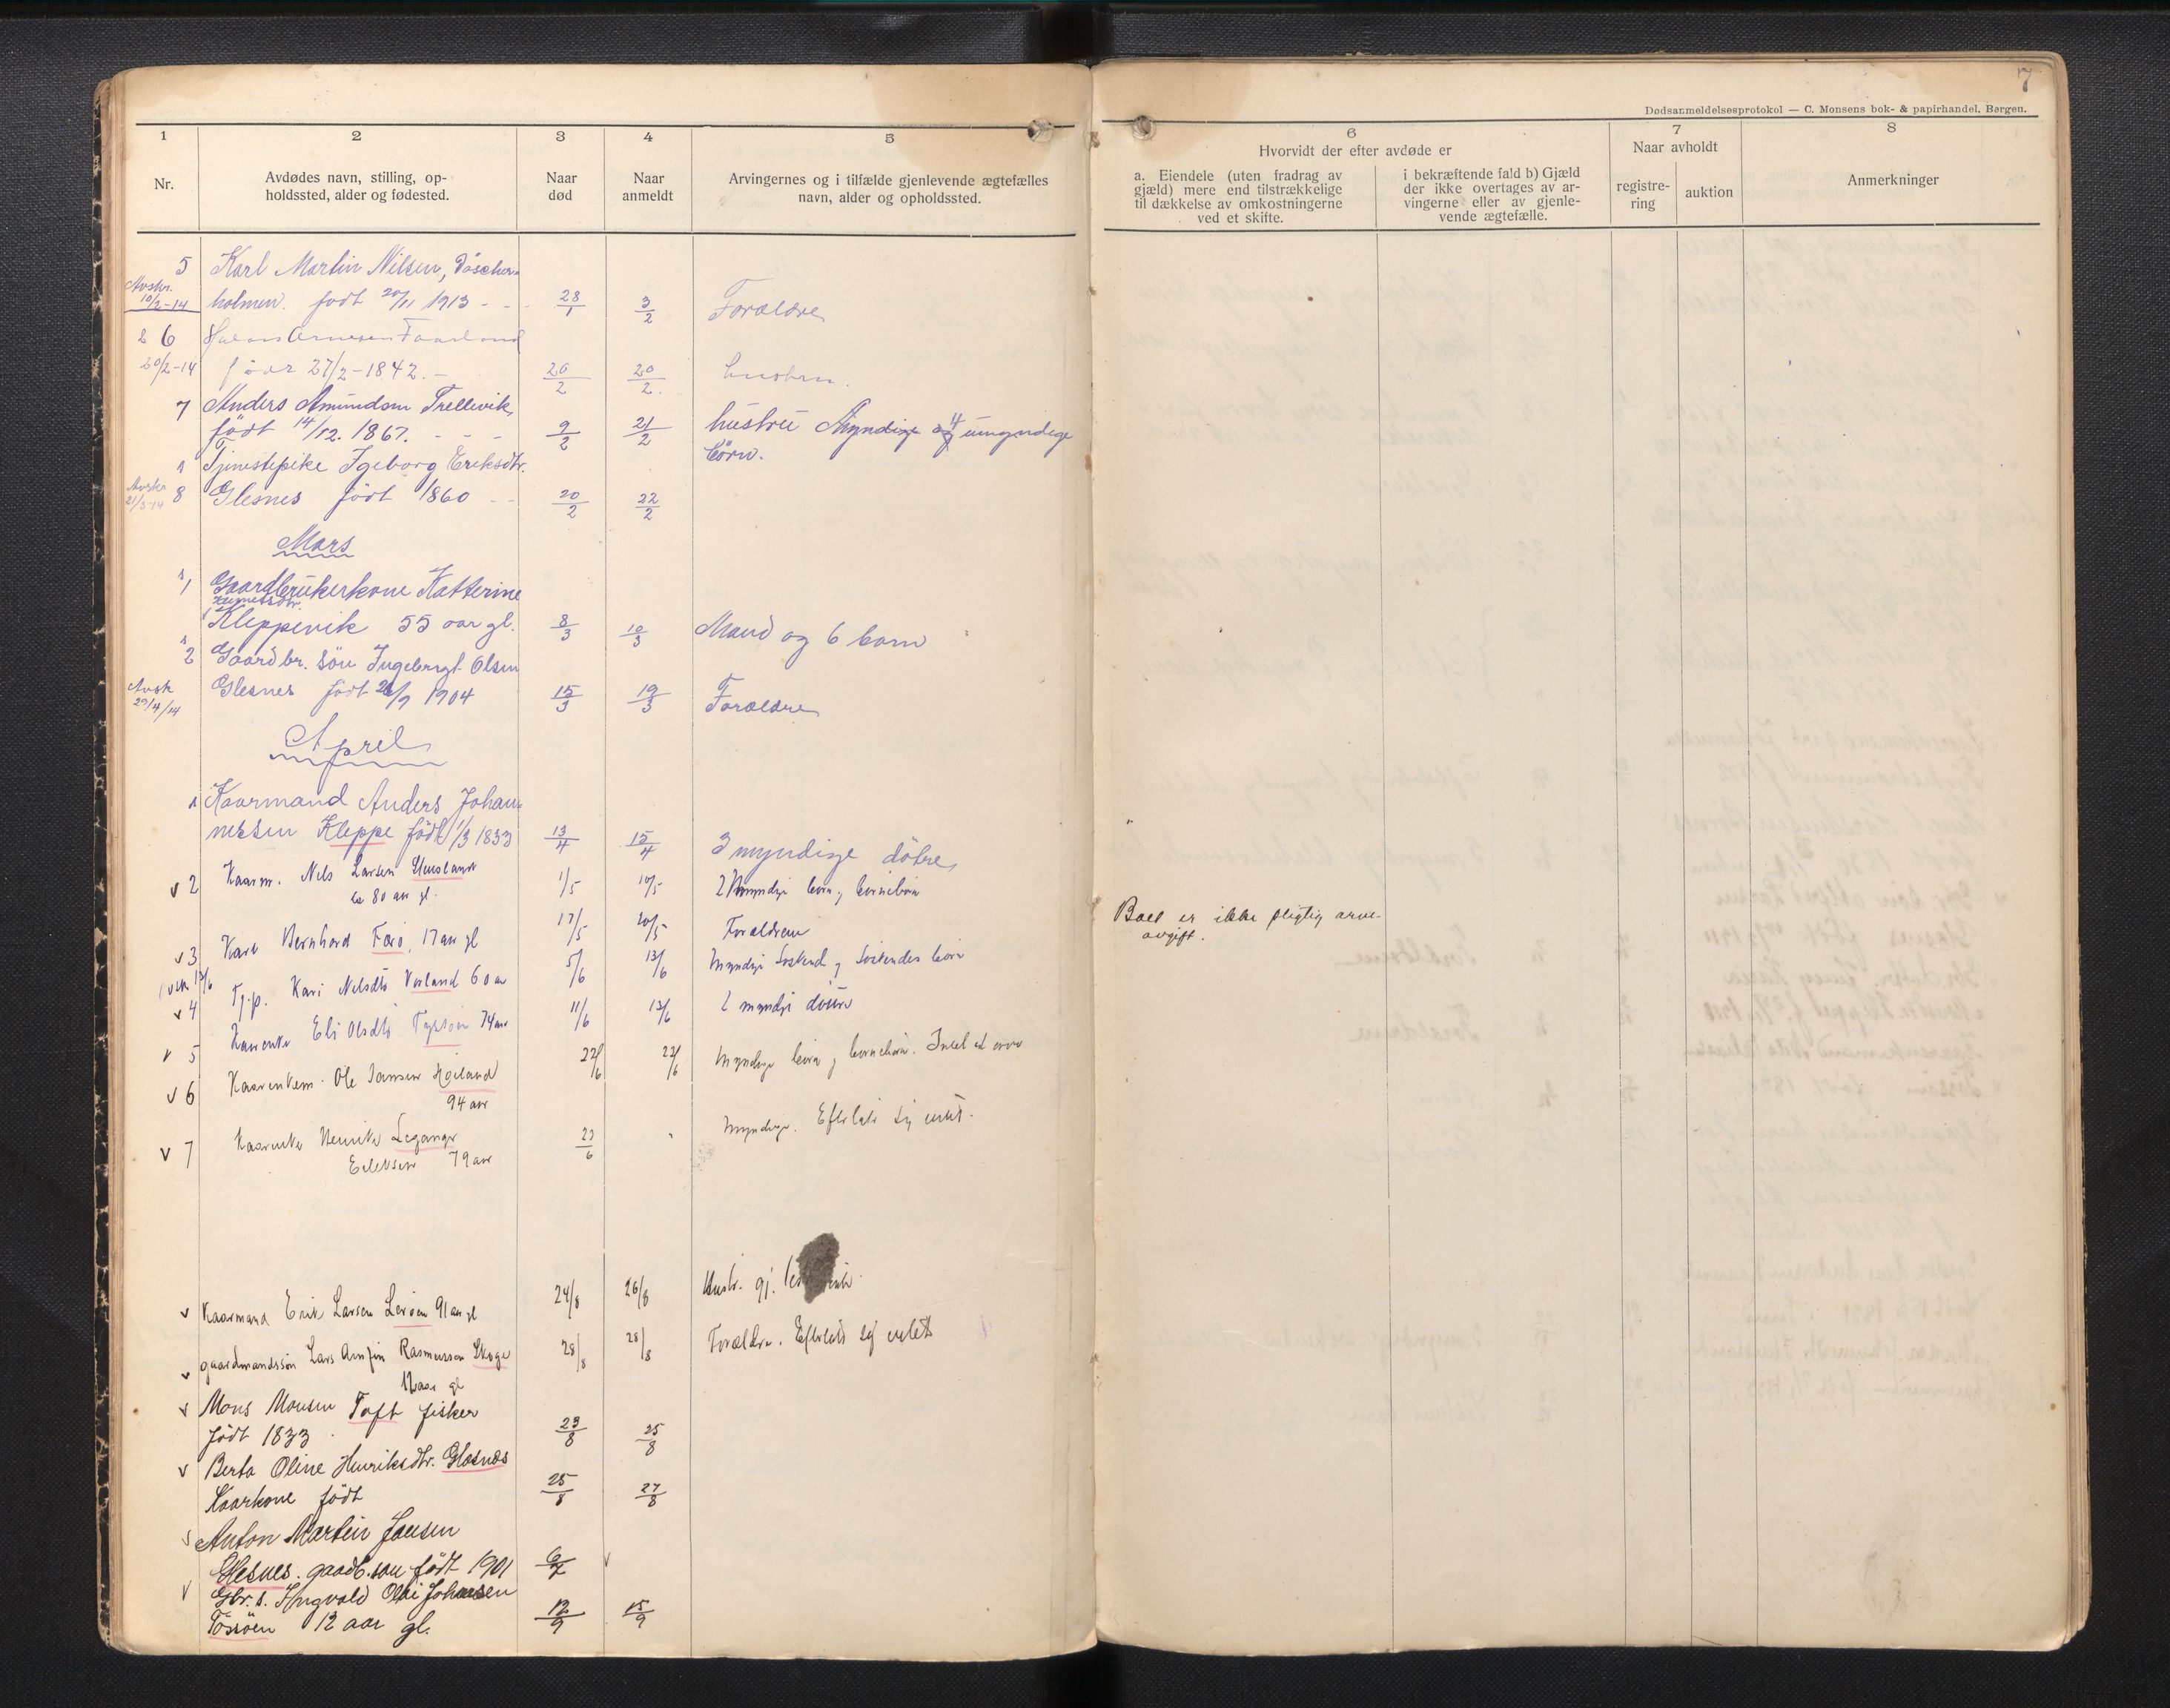 7
Dødsanmeldelsesprotokol — C. Monsens bok- & papirhandel, Bergen.
1 2 3 4 5 6 7 8
Nr.
Avdødes navn, stilling, op-
holdssted, alder og fødested.
Naar
død
Naar
anmeldt
Arvingernes og i tilfælde gjenlevende ægtefælles
navn, alder og opholdssted.
Hvorvidt der efter avdøde er
a. Eiendele (uten fradrag av
gjæld) mere end tilstrækkelige
til dækkelse av omkostningerne
ved et skifte.
i bekræftende fald b) Gjæld
der ikke overtages av ar-
vingerne eller av gjenle-
vende ægtefælle.
Naar avholdt
registre-
ring
auktion
Anmerkninger
5 Karl Martin Nilsen,
Avskr. 10/2-14 holmen. født 20/11 1913 - - 28/1 3/2 Forældre
6 Arnesen
20/2-14 född 27/2-1842. - 20/2 20/2.
7 Anders Amundsen Trellevik,
født 14/12. 1867. - - - 9/2 21/2 hustru Myndige og 4 umyndige
börn.
Tjenestepike Igeborg Eriksdtr.
Avskr 21/3-14 8 Glesnes født 1860 - - 20/2 22/2
Mars
1 Gaardbrukerkone Katterine
Kleppevik 55 aar gl. 8/3 10/3 Mand og 6 barn
2 Gaardbr. sön Ingebrigt Olsen
Avsk 29/4/14 Glesnes født 1904 15/3 19/3 Forældre
April
1 Kaarmand Anders Johan-
nessen Kleppe född 1/3 1833 13/4 15/4 3 myndige döbre,
v 2 Kaarm. Nils Larsen
ca 80 aar gl. 1/5 10/5 2 myndige börn og börnebörn
v 3 Karl Bernhard Færö, 17 aar gl 17/5 20/5 Forældrene
12/6
v 4 Tj.p. Kari Nelsdtr 60 aar 5/6 13/6 Myndige Söskend og Söskendes börn
v 5 Eli Olsdtr 74 aar 11/6 13/6 2 myndige
v 6 Kaarenkem. Ole Jansen
94 aar 22/6 22/6 Myndige börn og börnebörn. Intet at arve
v 7 Kaarenke Henrikke
79 aar 23/6 " Myndige. Efterlate sig intet.
Boet er ikke pligtig arve-
avgift.
v Kaarmand Erik Larsen Leröen 91 aar gl 24/8 26/8 Hustr. gj.
v gaardmandssön Lars Arnfin Rasmussen Skoge
12 aar gl 28/8 28/8 Forældre. Efterlod sig intet
v Mons Monsen Toft fisker
født 1833 23/8 25/8
v Berta Oline Henriksdtr. Glesnæs
Kaarkone född 25/8 27/8
v Anton Martin Jansen
Glesnes. gaadb.sön född 1901
v Gbr.s. Ingvald Johansen
Tössöen 12 aar gl. 12/9 15/9